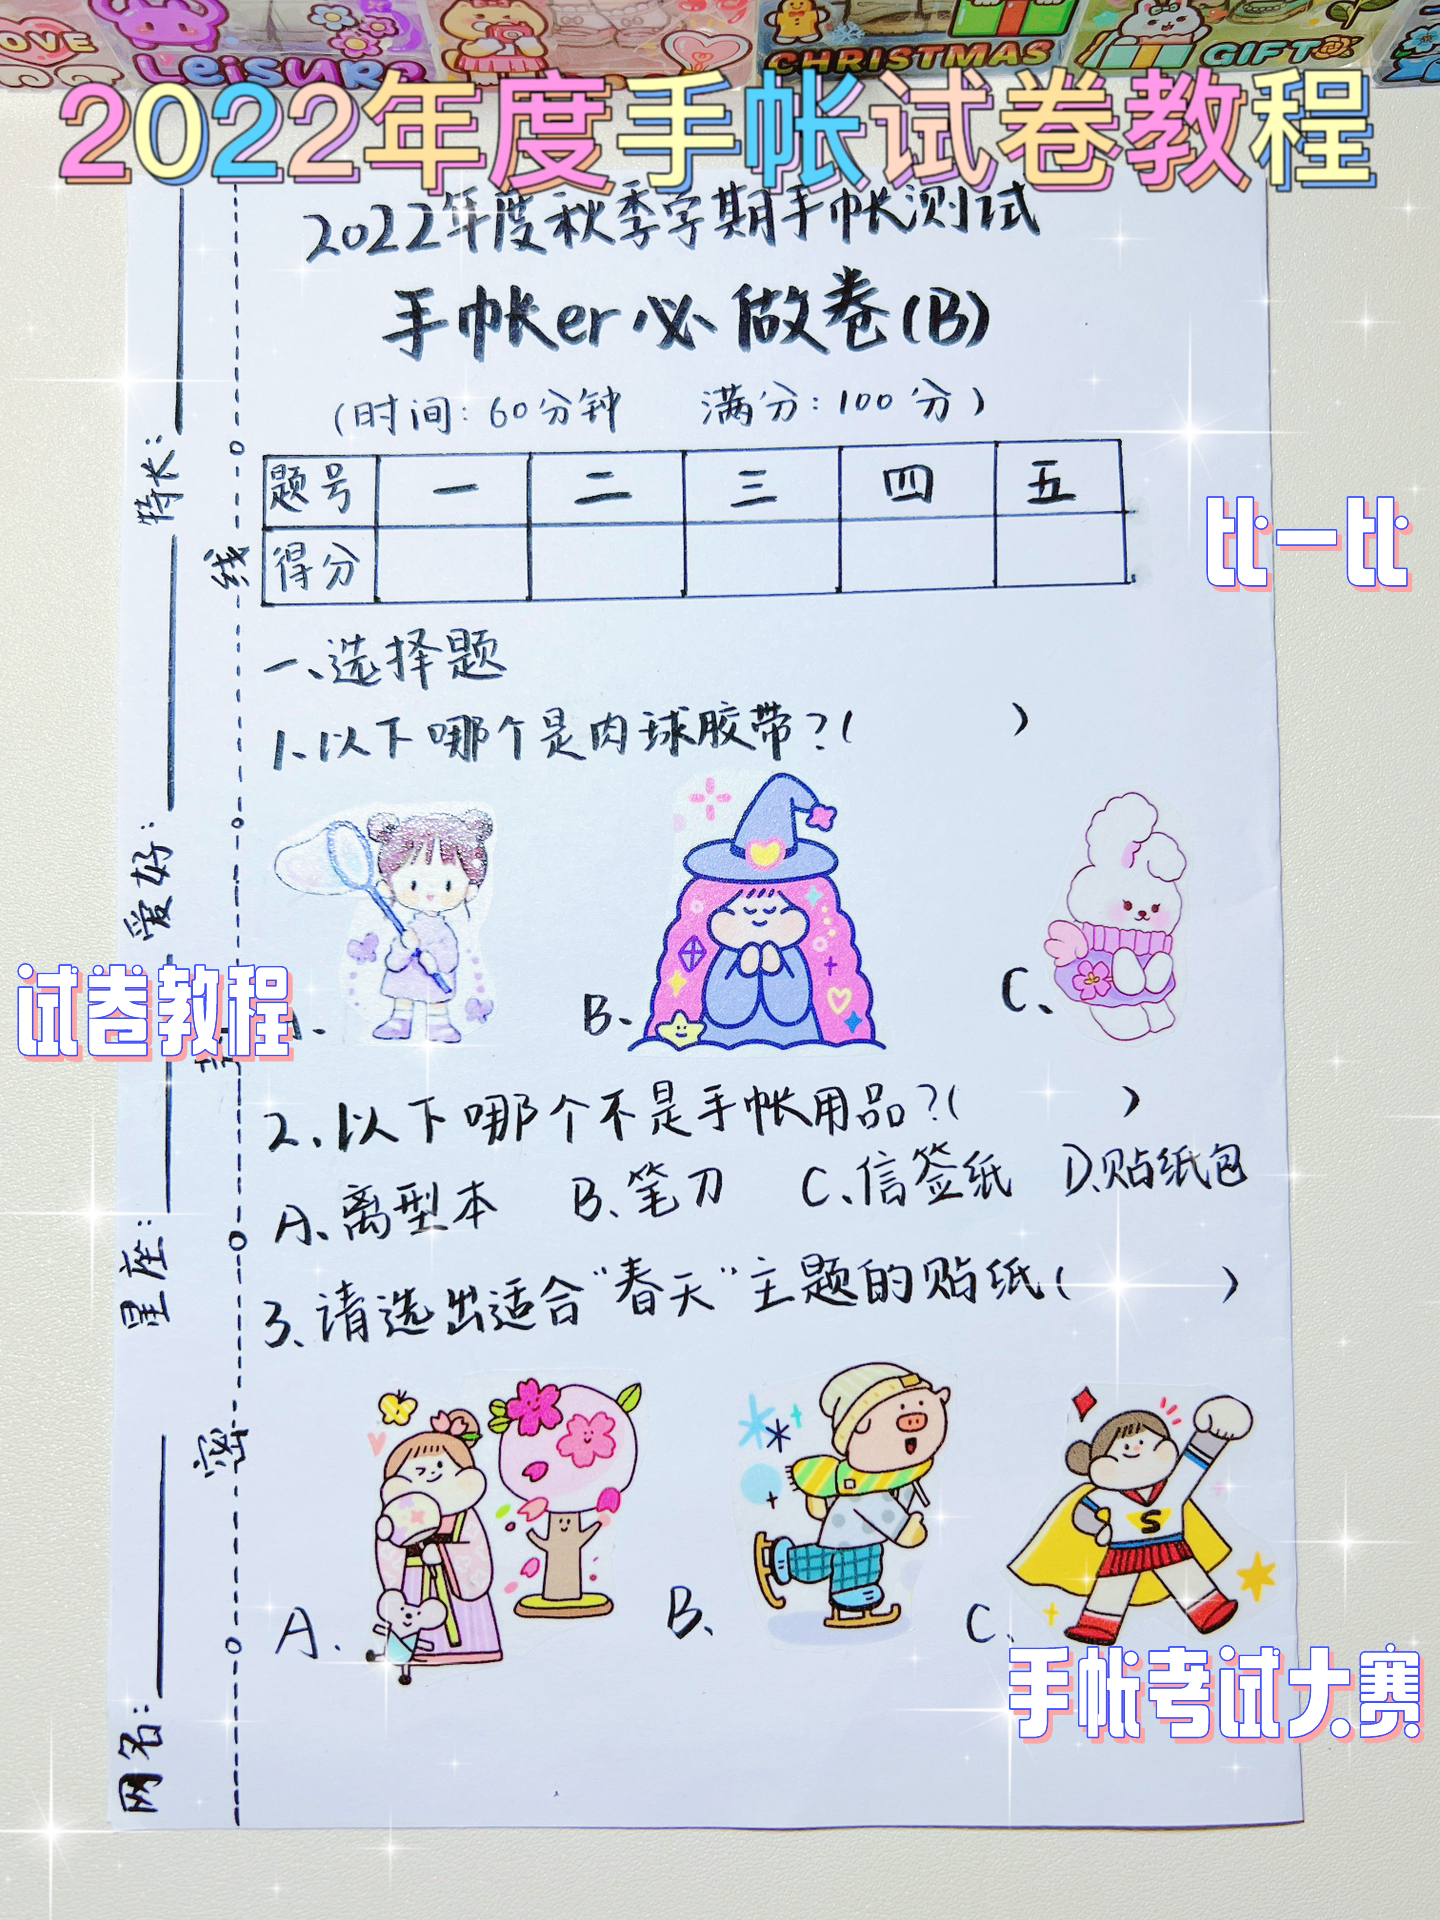 LOVE
LEiSURE
CHRISTMAS
GIFT
2022年度手帐试卷教程
2022年度秋季学期手帐测试
手帐er必做卷(B)
(时间:60分钟 满分:100分)
题号 一 二 三 四 五
得分
比一比
一、选择题
1、以下哪个是肉球胶带?( )
B、
C、
试卷教程
2、以下哪个不是手帐用品?( )
A、离型本 B、笔刀 C、信签纸 D、贴纸包
3、请选出适合"春天"主题的贴纸( )
S
A.
B、
C、
手帐考试大赛
特长:
爱好:
星座:
网名:
线
密